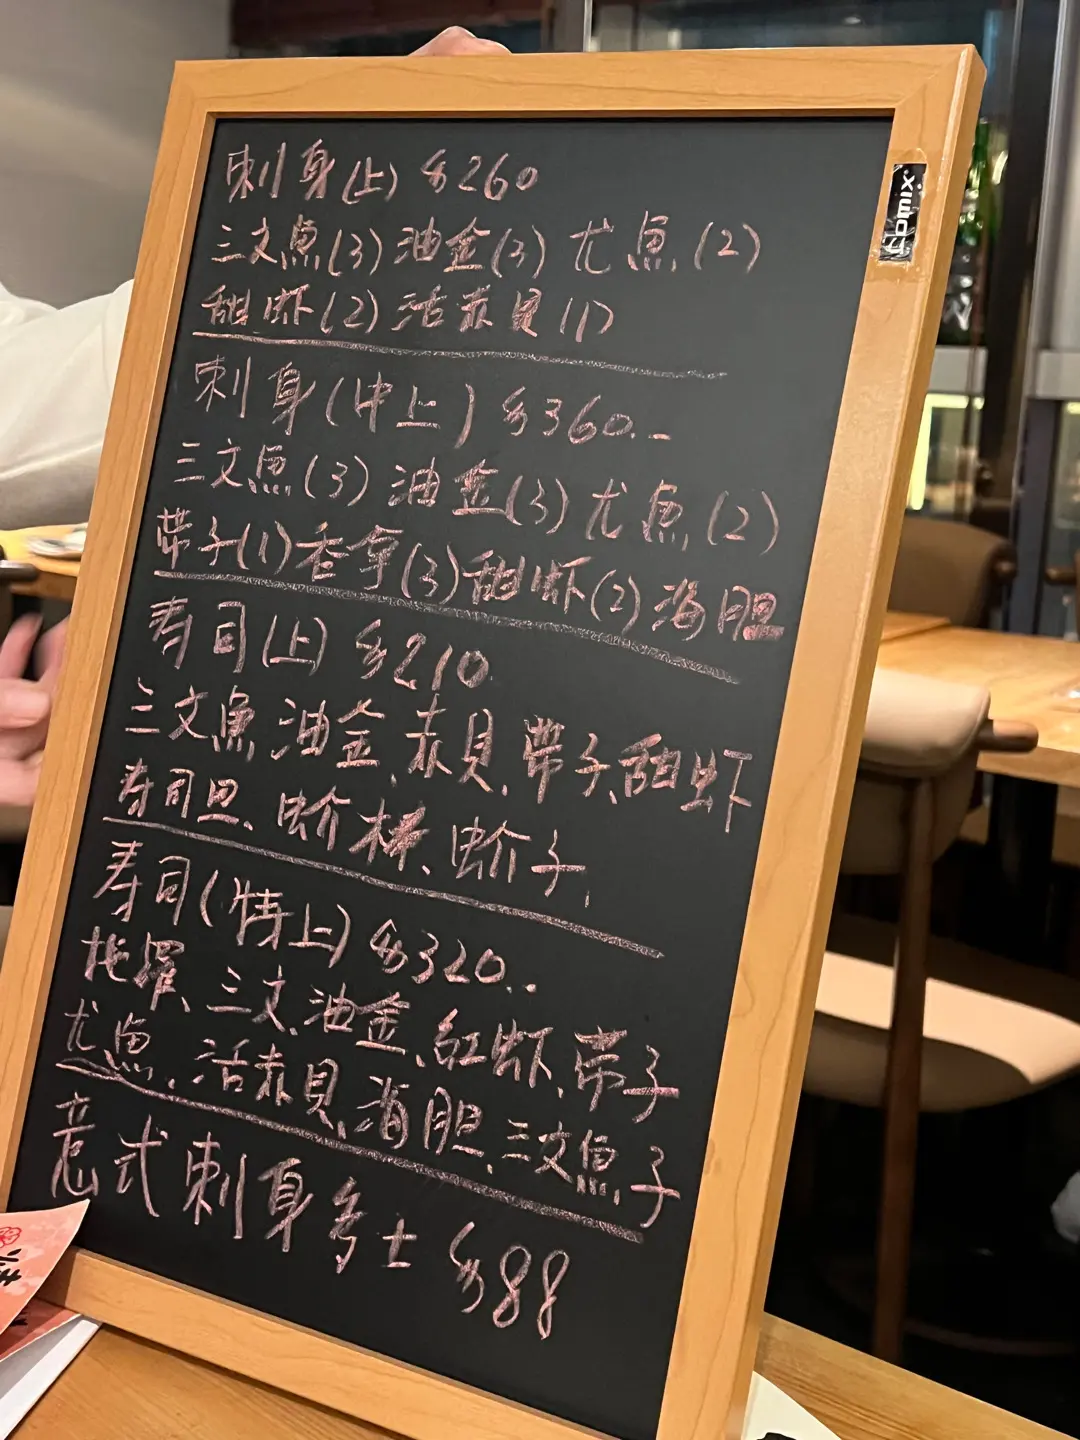 刺身(上) $260
三文魚(3) 油金(3) 尤魚(2)
甜虾(2) 活赤贝(1)
刺身(中上) $360..
三文魚(3) 油金(3) 尤魚(2)
带子(1) 香拿(3) 甜虾(2) 海胆
寿司(上) $210
三文魚、油金、赤贝、带子、甜虾
寿司旦、蚧棒、蚧子
寿司(特上) $320..
拖罗、三文、油金、红虾、带子
尤魚、活赤贝、海胆、三文魚子
意式刺身多士 $88
comix